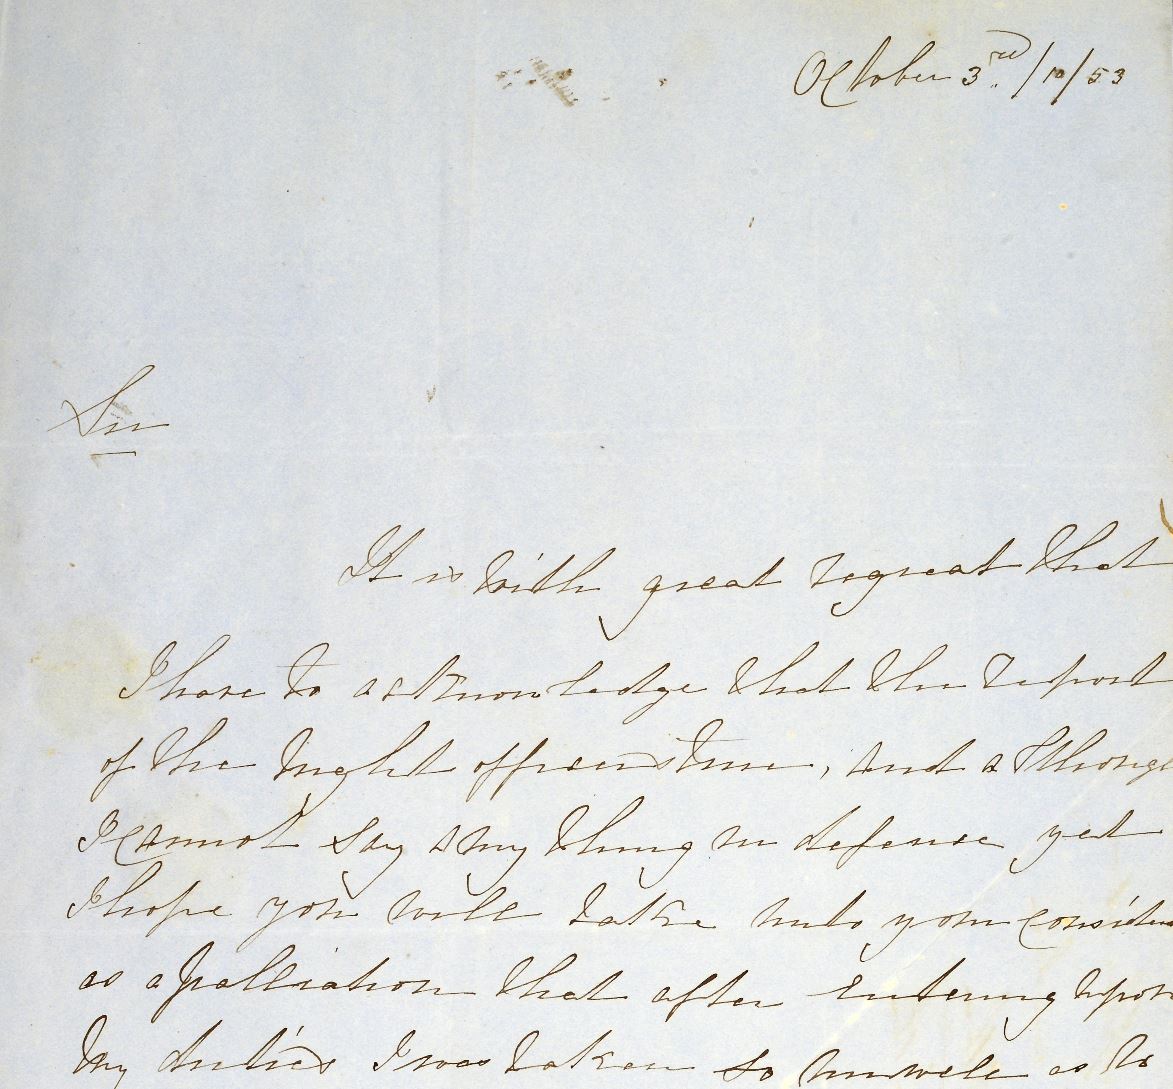 October 3rd/10/53
Sir
It is with great regreat that
I have to acknowledge that the report
of the night officer is true, and although
I cannot say any thing in defense yet
I hope you will take into your consider
as a palliation that after entering upon
my duties I was taken so unwell as to